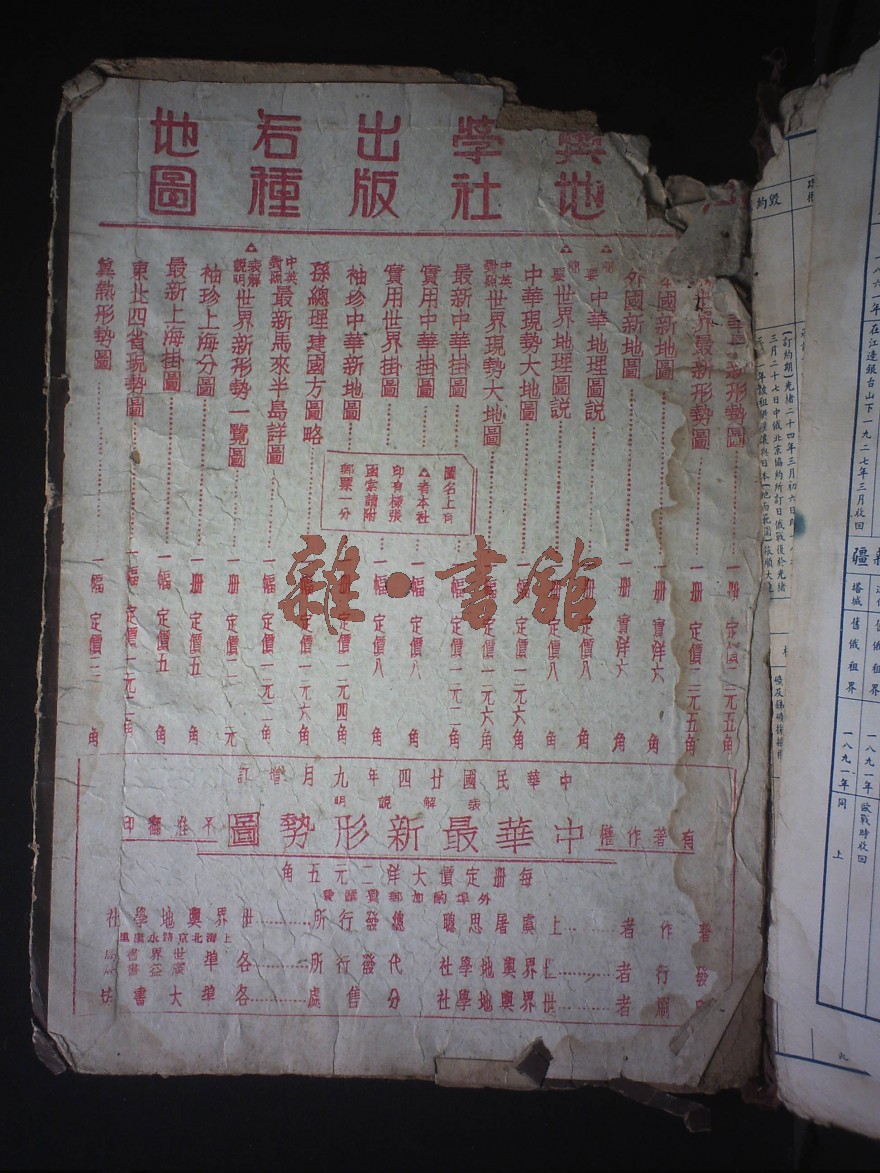 輿地學社出版各種地圖
世界最新形勢圖 一冊 定價二元五角
外國新地圖 一冊 實洋六角
簡要中華地理圖說 一冊 定價八角
簡要世界地理圖說 一冊 定價八角
中華現勢大地圖 定價一元六角
中英對照世界現勢大地圖 一幅 定價一元六角
最新中華掛圖 一幅 定價一元二角
實用中華掛圖 一幅 定價八角
實用世界掛圖 一幅 定價八角
袖珍中華新地圖 一冊 定價一元四角
孫總理建國方圖略 一幅 定價一元六角
中英對照最新馬來半島詳圖 一幅 定價一元二角
△表解說明世界新形勢一覽圖 一冊 定價二元
袖珍上海分圖 一冊 定價五角
最新上海掛圖 一幅 定價五角
東北四省現勢圖 一幅 定價一元二角
冀熱形勢圖 一幅 定價二角
圖名上有
△者本社
印有樣張
函索請附
郵票一分
雜·書館
中華民國廿四年九月增訂
表解說明
有著作權
中華最新形勢圖
不准翻印
每冊定價大洋二元五角
外埠酌加郵費匯費
著作者……上虞屠思聰
總發行所……世界輿地學社
上海北京路永慶里
發行者……世界輿地學社
代發行所……各埠
世界書
印刷者……世界輿地學社
分售處……各埠大書坊
毀約
三月二十七日中俄北京協約所訂日俄戰後於光緒
在江達銀台山下一九二七年三月收回
疆
塔城
舊俄租界
舊俄租界
一八九一年
一八九一年同上
歐戰時收回